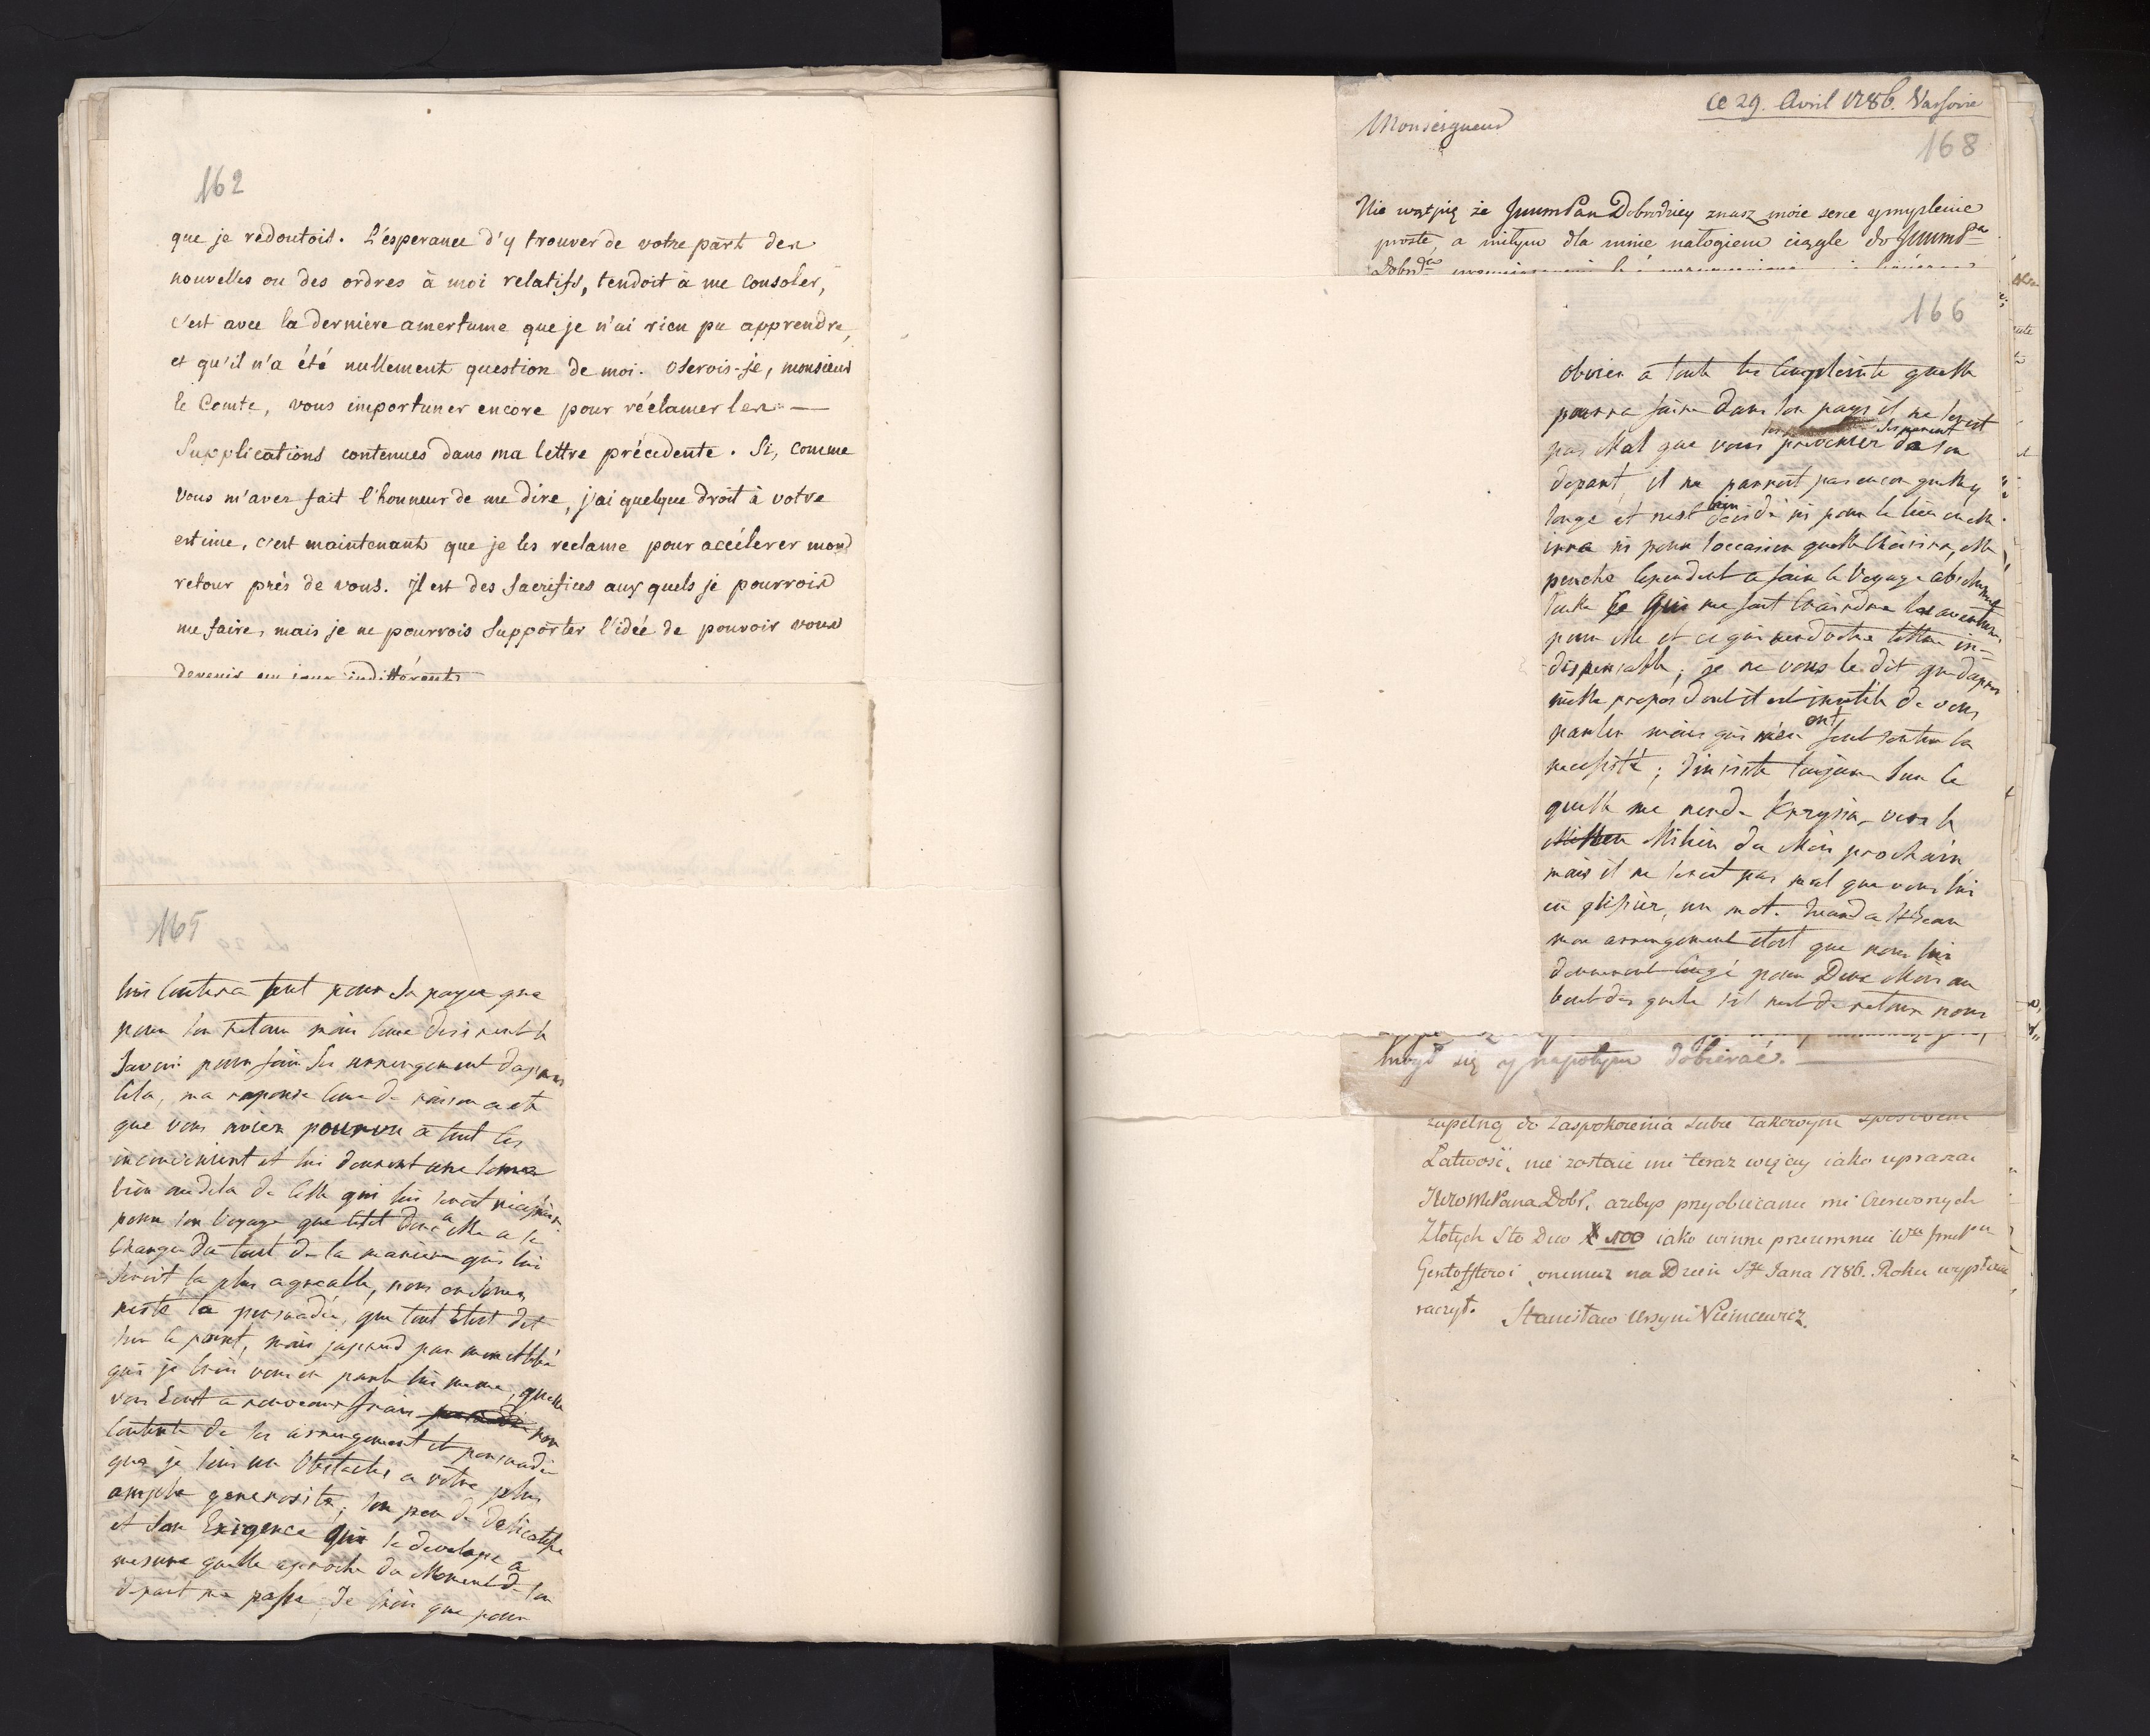 162
que je redoutois. L'esperance d'y trouver de votre part des
nouvelles ou des ordres à moi relatifs, tendoit à me consoler,
c'est avec la derniere amertume que je n'ai rien pu apprendre,
et qu'il n'a été nullement question de moi. oserois-je, monsieur
le Comte, vous importuner encore pour réclamer les
Supplications contenues dans ma lettre précédente. Si, comme
vous m'avez fait l'honneur de me dire, j'ai quelque droit à votre
estime, c'est maintenant que je les reclame pour accélerer mon
retour près de vous. Il est des Sacrifices aux quels je pourrois
me faire, mais je ne pourrois Supporter l'idée de pouvoir vous
devenir un jour indifférent
plus respectueux
165
lui contera tout pour Sa payer que
pour Son retour mais
Savoir pour fair Ses arrengement dapres
Cela, ma reponse
que vous aviez pourvu a tout les
inconvenient et lui donnent une Somme
bien audela de Celle qui lui seroit necessaire
pour Son Voyage que Cetet donc a elle a Se
Changer du tout de la maniere qui lui
Seroit la plus agreable, nous en Somes
reste la persuadée, que tout Etoit dit
Sur ce point, mais japrend par mon Abbé
que je Crois vous en parle lui meme, quelle
vous Ecrit a nouveaux frais non
Contente de Ses arrengement et persuadée
que je Suis un Obstacle a votre plus
ample generosité; Son peu de delicatesse
et Son Exigence qui Se develope a
mesure quelle aproche du Moment de Son
depart me passe, Je Crois que pour
Ce 29. Avril 1786. Varsovie
168
Monseigneur
Nie wątpię że JmmPan Dobrodziey znasz moie serce y myslenie
proste, a miłym dla mnie nałogiem ciągle do JmmPa
Dobrdza
166
obvier a toute les Complainte quelle
pourra faire dans Son pays il ne Seroit
pas Mal que vous
depart, il ne paroit pas encor quelle y
Songe et nest bien decidé ni pour le lieu ou elle
irra ni pour loccasion quelle Choisira, elle
penche Cependent a faire le Voyage absolument
Seulle Ce Qui me fait Craindre les aventures
pour elle et ce qui rend votre lettre in=
dispensable; je ne vous le dit que dapres
mille propos dont il est inutile de vous
parler mais qui men ont fait Sentir la
necessité; Jinsiste toujour Sur Ce
quelle me rende Krzysia vers le
Milieu du Mois prochain
mais il ne Seroit pas mal que vous lui
en glissiez, un mot. Quand a St Jean
mon arrengement etoit que nous lui
donneront Congé pour Deux Mois au
bout des quels Sil nest de retour nous
mogł się y napotym dobierać.
zupełną do zaspokoienia Siebie takowym sposobem
Łatwość, nie zostaie mi teraz więcey iako upraszać
JWroMPana Dobr. azebys przyobiecane mi Czerwonych
Złotych Sto Duo # 100 iako winne przezemnie
onemuz na Dzień S. Jana 1786. Roku wypłacić
raczył.
Stanisław Ursyn Niemcewicz